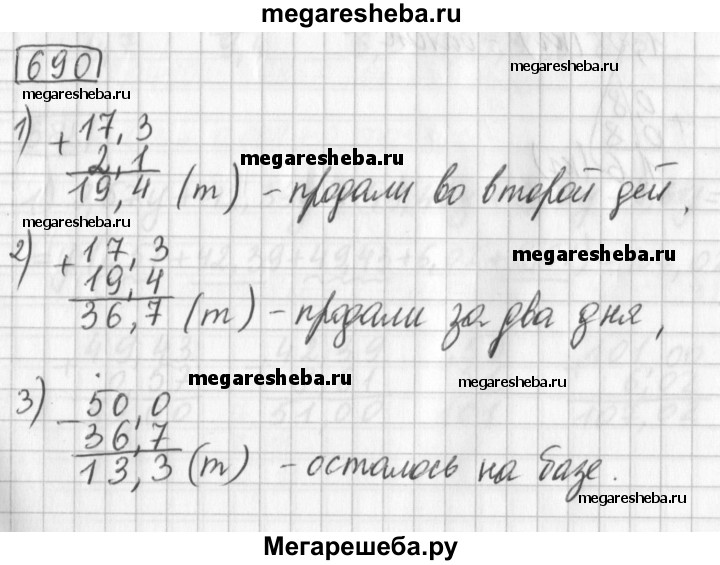 megaresheba.ru
690
megaresheba.ru
megaresheba.ru
1) + 17,3
2,1
megaresheba.ru
19,4 (т) - продали во второй дей,
megaresheba.ru
2) + 17,3
megaresheba.ru
19,4
36,7 (т) - продали за два дня,
megaresheba.ru
megaresheba.ru
3) - 50,0
36,7
13,3 (т) - осталось на базе.
megaresheba.ru
Мегарешеба.ру